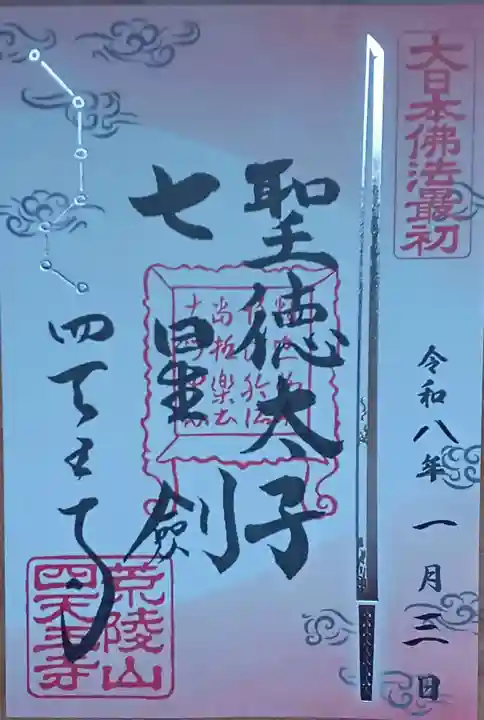 大日本佛法最初
令和八年一月三日
聖徳太子
七星劍
四天王寺
荒陵山
四天王寺